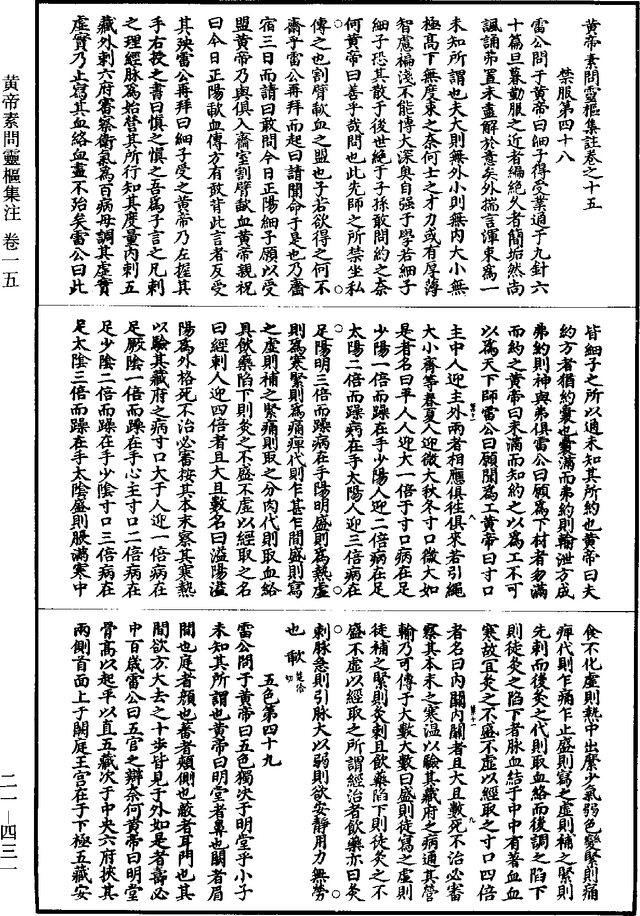 黃帝素問靈樞集註卷之十五
禁服第四十八
雷公問于黃帝曰細子得受業通于九針六
十篇旦暮勤服之近者編絶久者簡垢然尚
諷誦弗置未盡解於意矣外揣言渾束爲一
未知所謂也夫大則無外小則無内大小無
極高下無度束之奈何士之才力或有厚薄
智慮褊淺不能博大深奥自强于學若細子
細子恐其散于後世絶于子孫敢問約之奈
何黃帝曰善乎哉問也此先師之所禁坐私
傳之也割臂歃血之盟也子若欲得之何不
齋乎雷公再拜而起曰請聞命于是也乃齋
宿三日而請曰敢問今日正陽細子願以受
盟黃帝乃與俱入齋室割臂歃血黃帝親祝
曰今日正陽歃血傳方有敢背此言者反受
其殃雷公再拜曰細子受之黃帝乃左握其
手右授之書曰慎之慎之吾爲子言之凡刺
之理經脉爲始營其所行知其度量内刺五
藏外刺六府審察衛氣爲百病母調其虚實
虚實乃止寫其血絡血盡不殆矣雷公曰此
皆細子之所以通未知其所約也黃帝曰夫
約方者猶約囊也囊滿而弗約則輸泄方成
弗約則神與弗俱雷公曰願爲下材者勿滿
而約之黃帝曰未滿而知約之以爲工不可
以爲天下師雷公曰願聞爲工黃帝曰寸口
主中人迎主外兩者相應俱往俱來若引繩
大小齊等春夏人迎微大秋冬寸口微大如
是者名曰平人人迎大一倍于寸口病在足
少陽一倍而躁病在手少陽人迎二倍病在足
太陽二倍而躁病在手太陽人迎三倍病在
足陽明三倍而躁病在手陽明盛則爲熱虚
則爲寒緊則爲痛痺代則乍甚乍間盛則寫
之虚則補之緊痛則取之分肉代則取血絡
具飲藥陷下則灸之不盛不虚以經取之名
曰經刺人迎四倍者且大且數名曰溢陽溢
陽爲外格死不治必審按其本末察其寒熱
以驗其藏府之病寸口大于人迎一倍病在
足厥陰一倍而躁在手心主寸口二倍病在
足少陰二倍而躁在手少陰寸口三倍病在
足太陰三倍而躁在手太陰盛則脹滿寒中
食不化虚則熱中出糜少氣溺色變緊則痛
痺代則乍痛乍止盛則寫之虚則補之緊則
先刺而後灸之代則取血絡而後調之陷下
則徒灸之陷下者脉血結于中中有著血血
寒故宜灸之不盛不虚以經取之寸口四倍
者名曰内關内關者且大且數死不治必審
察其本末之寒温以驗其藏府之病通其營
輸乃可傳于大數大數曰盛則徒寫之虚則
徒補之緊則灸刺且飲藥陷下則徒灸之不
盛不虚以經取之所謂經治者飲藥亦曰灸
刺脉急則引脉大以弱則欲安靜用力無勞
也
五色第四十九
雷公問于黃帝曰五色獨決于明堂乎小子
未知其所謂也黃帝曰明堂者鼻也闕者眉
間也庭者顔也蕃者頰側也蔽者耳門也其
間欲方大去之十步皆見于外如是者壽必
中百歲雷公曰五官之辯奈何黃帝曰明堂
骨高以起平以直五藏次于中央六府挾其
兩側首面上于闕庭王宫在于下極五藏安
黃帝素問靈樞集注 卷一五
二一—四三一